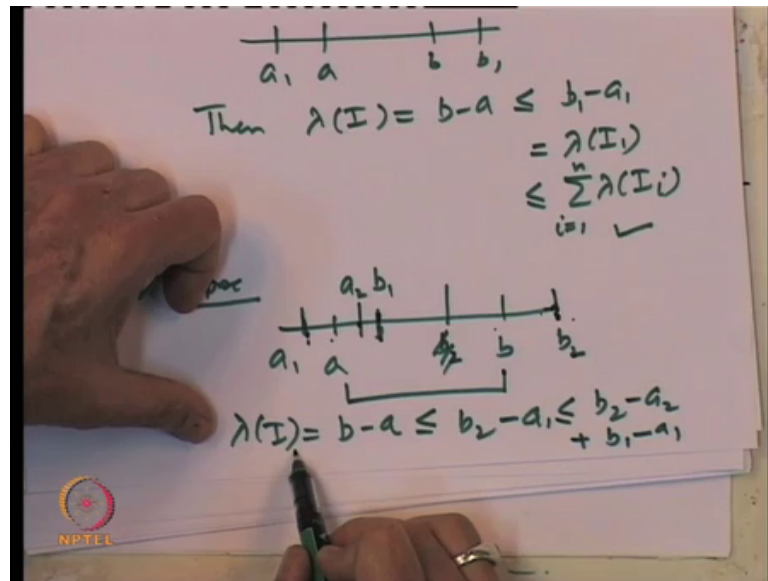 a₁ a b b₁
Then λ(I) = b-a ≤ b₁-a₁
= λ(I₁)
≤ Σⁿᵢ₌₁ λ(Iᵢ) ✓
a₂ b₁
a₁ a b b₂
λ(I) = b-a ≤ b₂-a₁ ≤ b₂-a₂
+ b₁-a₁
NPTEL